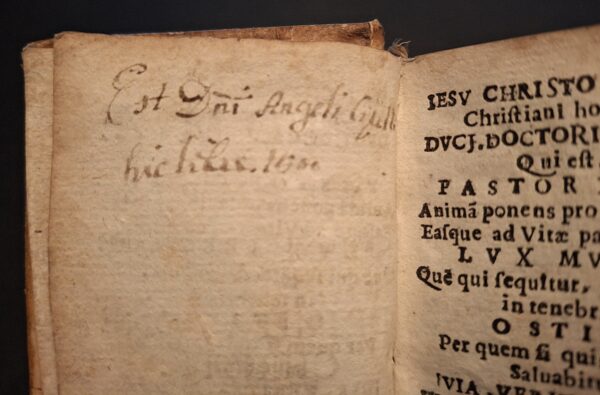 Est Dni Angeli
hic liber.
IESV CHRISTO
Chriſtiani ho
DVCI. DOCTORI
Qui eſt
PASTOR
Animã ponens pro
Eaſque ad Vitæ pa
LVX MV
Quẽ qui ſequitur,
in tenebr
OSTI
Per quem ſi qui
Saluabit